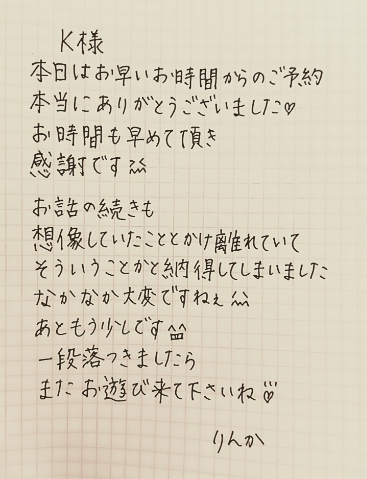 K様
本日はお早いお時間からのご予約
本当にありがとうございました♡
お時間も早めて頂き
感謝です^^
お話の続きも
想像していたこととかけ離れていて
そういうことかと納得してしまいました
なかなか大変ですねぇ^^
あともう少しです^^
一段落つきましたら
またお遊び来て下さいね♡
りんか